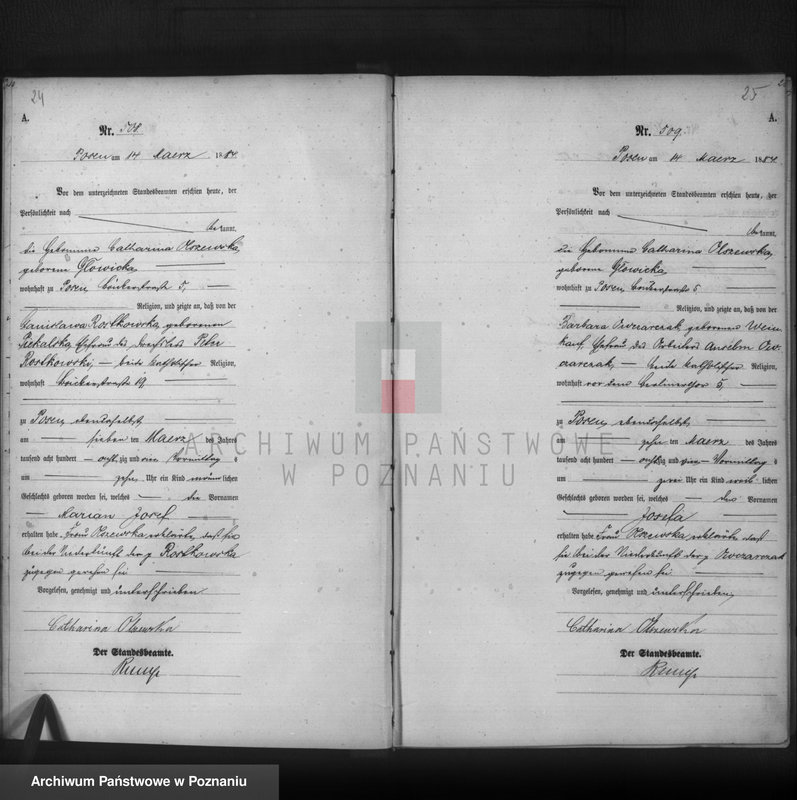 24
A.
Nr. 508.
Posen am 14 Maerz 1884.
Vor dem unterzeichneten Standesbeamten erschien heute, der
Persönlichkeit nach
kannt,
die Hebamme Catharina Olszewska,
geborene Głowicka,
wohnhaft zu Posen, Bäckerstraße 5,
Religion, und zeigte an, daß von der
Stanisława Rostkowska, geborenen
Piekalska, Ehefrau des Peter
Rostkowski, beide katholischer Religion,
wohnhaft Bäckerstraße 19
zu Posen, ebendaselbst,
am sieben ten Maerz des Jahres
tausend acht hundert acht zig und vier Vormittag s
um zehn Uhr ein Kind männlichen
Geschlechts geboren worden sei, welches die Vornamen
Marian Josef
erhalten habe. Frau Olszewska erklärte, daß sie
bei der Niederkunft der p. Rostkowska
zugegen gewesen sei
Vorgelesen, genehmigt und unterschrieben
Catharina Olszewska
Der Standesbeamte.
25
A.
Nr. 509.
Posen am 14 Maerz 1884.
Vor dem unterzeichneten Standesbeamten erschien heute, der
Persönlichkeit nach
kannt,
die Hebamme Catharina Olszewska,
geborene Głowicka,
wohnhaft zu Posen, Bäckerstraße 5
Religion, und zeigte an, daß von der
Barbara Owczarczak geborenen Wein-
kauf, Ehefrau des Arbeiters Anselm Ow-
czarczak, beide katholischer Religion,
wohnhaft vor dem Berlinerthor 5,
zu Posen, ebendaselbst,
am zehn ten Maerz des Jahres
tausend acht hundert achtzig und vier Vormittag s
um zwei Uhr ein Kind weiblichen
Geschlechts geboren worden sei, welches den Vornamen
Josefa
erhalten habe. Frau Olszewska erklärte daß
sie bei der Niederkunft der p. Owczarczak
zugegen gewesen sei
Vorgelesen, genehmigt und unterschrieben,
Catharina Olszewska
Der Standesbeamte.
ARCHIWUM PAŃSTWOWE
W POZNANIU
Archiwum Państwowe w Poznaniu